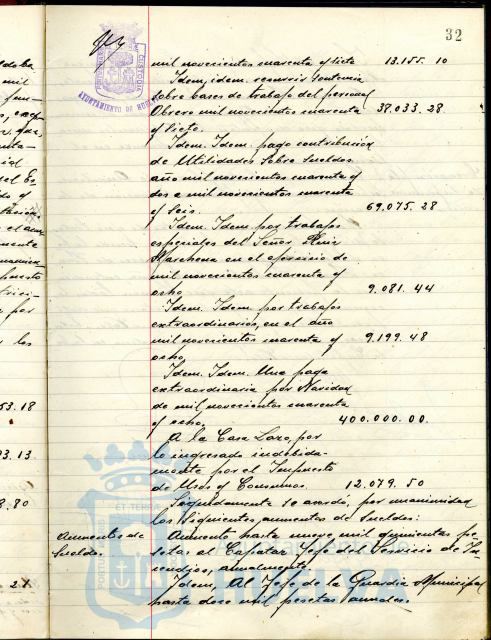 32
AYUNTAMIENTO DE HUELVA
mil novecientos cuarenta y siete 13.155. 10
Idem, idem. reservis sentencia
sobre bases de trabajo del personal
Obrero mil novecientos cuarenta 38.033. 28
y siete.
Idem. Idem. pago contribución
de Utilidades sobre sueldos
año mil novecientos cuarenta y
dos a mil novecientos cuarenta
y seis. 69.075. 28
Idem. Idem. por trabajos
especiales del Señor Ruiz
Marchena en el ejercicio de
mil novecientos cuarenta y
ocho 9.081. 44
Idem. Idem. por trabajos
extraordinarios, en el año
mil novecientos cuarenta y 9.199. 48
ocho
Idem. Idem. Una paga
extraordinaria por Navidad
de mil novecientos cuarenta
y ocho, 400.000. 00.
A la Casa Lazo, por
lo ingresado indebida-
mente por el Impuesto
de Usos y Consumos. 12.079. 50
Seguidamente se acordó, por unanimidad
los siguientes, aumentos de sueldos:
Aumentos de
Sueldos.
Aumento hasta nueve mil quinientas pe-
setas al Capataz Jefe del Servicio de In-
cendios, anualmente.
Idem. Al Jefe de la Guardia Municipal
hasta doce mil pesetas anuales
53.18
93.13
8.80
HUELVA